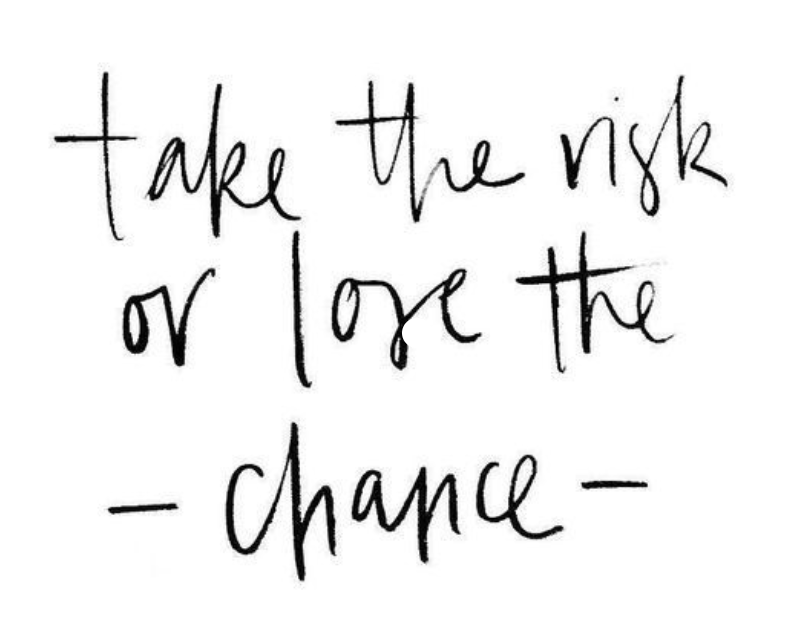 take the risk
or lose the
- chance -